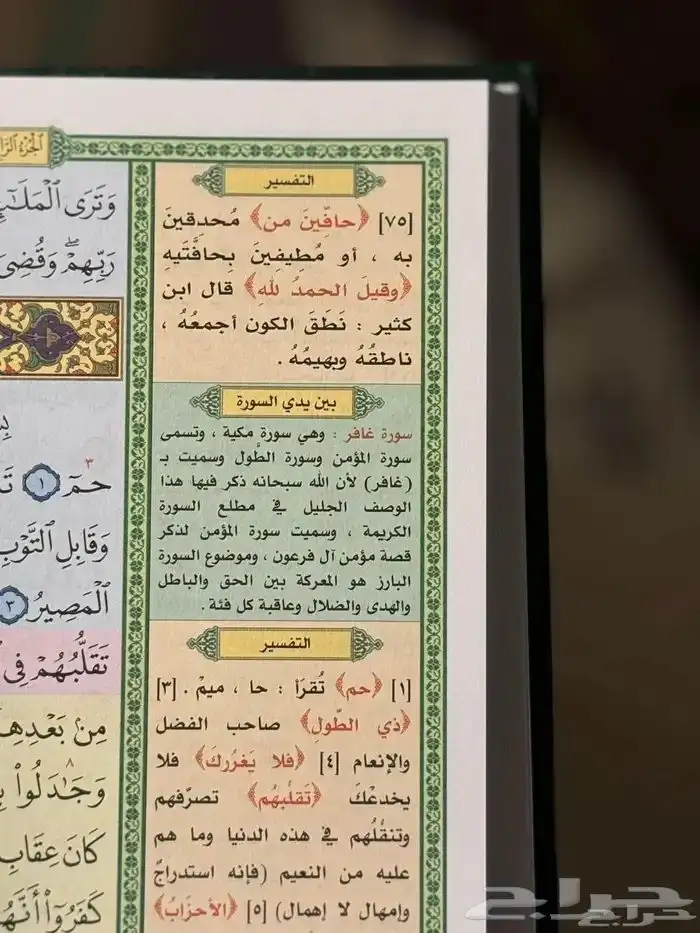 التفسير
[٧٥] ﴿حافِّينَ من﴾ مُحدِقينَ
به ، أو مُطِيفينَ بِحافَّتَيهِ
﴿وقيلَ الحمدُ للهِ﴾ قال ابن
كثير : نَطَقَ الكون أجمعُهُ ،
ناطقُهُ وبهيمُهُ .
بين يدي السورة
سورة غافر : وهي سورة مكية ، وتسمى
سورة المؤمن وسورة الطَّول وسميت بـ
(غافر) لأن الله سبحانه ذكر فيها هذا
الوصف الجليل في مطلع السورة
الكريمة ، وسميت سورة المؤمن لذكر
قصة مؤمن آل فرعون ، وموضوع السورة
البارز هو المعركة بين الحق والباطل
والهدى والضلال وعاقبة كل فئة .
التفسير
[١] ﴿حم﴾ تُقرَأ : حا ، ميمْ . [٣]
﴿ذي الطَّولِ﴾ صاحب الفضل
والإنعام [٤] ﴿فلا يَغرُركَ﴾ فلا
يخدعْكَ ﴿تَقلُّبهُم﴾ تصرّفهم
وتنقُّلُهم في هذه الدنيا وما هم
عليه من النعيم (فإنه استدراجٌ
وإمهال لا إهمال) [٥] ﴿الأحزَابُ﴾
الجزء
وَتَرَى
رَبِّهِمْ ۖ وَقُضِىَ
حمٓ ٣ ١
وَقَابِلِ ٱلتَّوْبِ
ٱلْمَصِيرُ ٣
تَقَلُّبُهُمْ فِى
مِنۢ بَعْدِهِ
وَجَـٰدَلُوا۟ ٨
كَانَ عِقَابِ
كَفَرُوٓا۟ أَنَّهُ
حراج
حراج